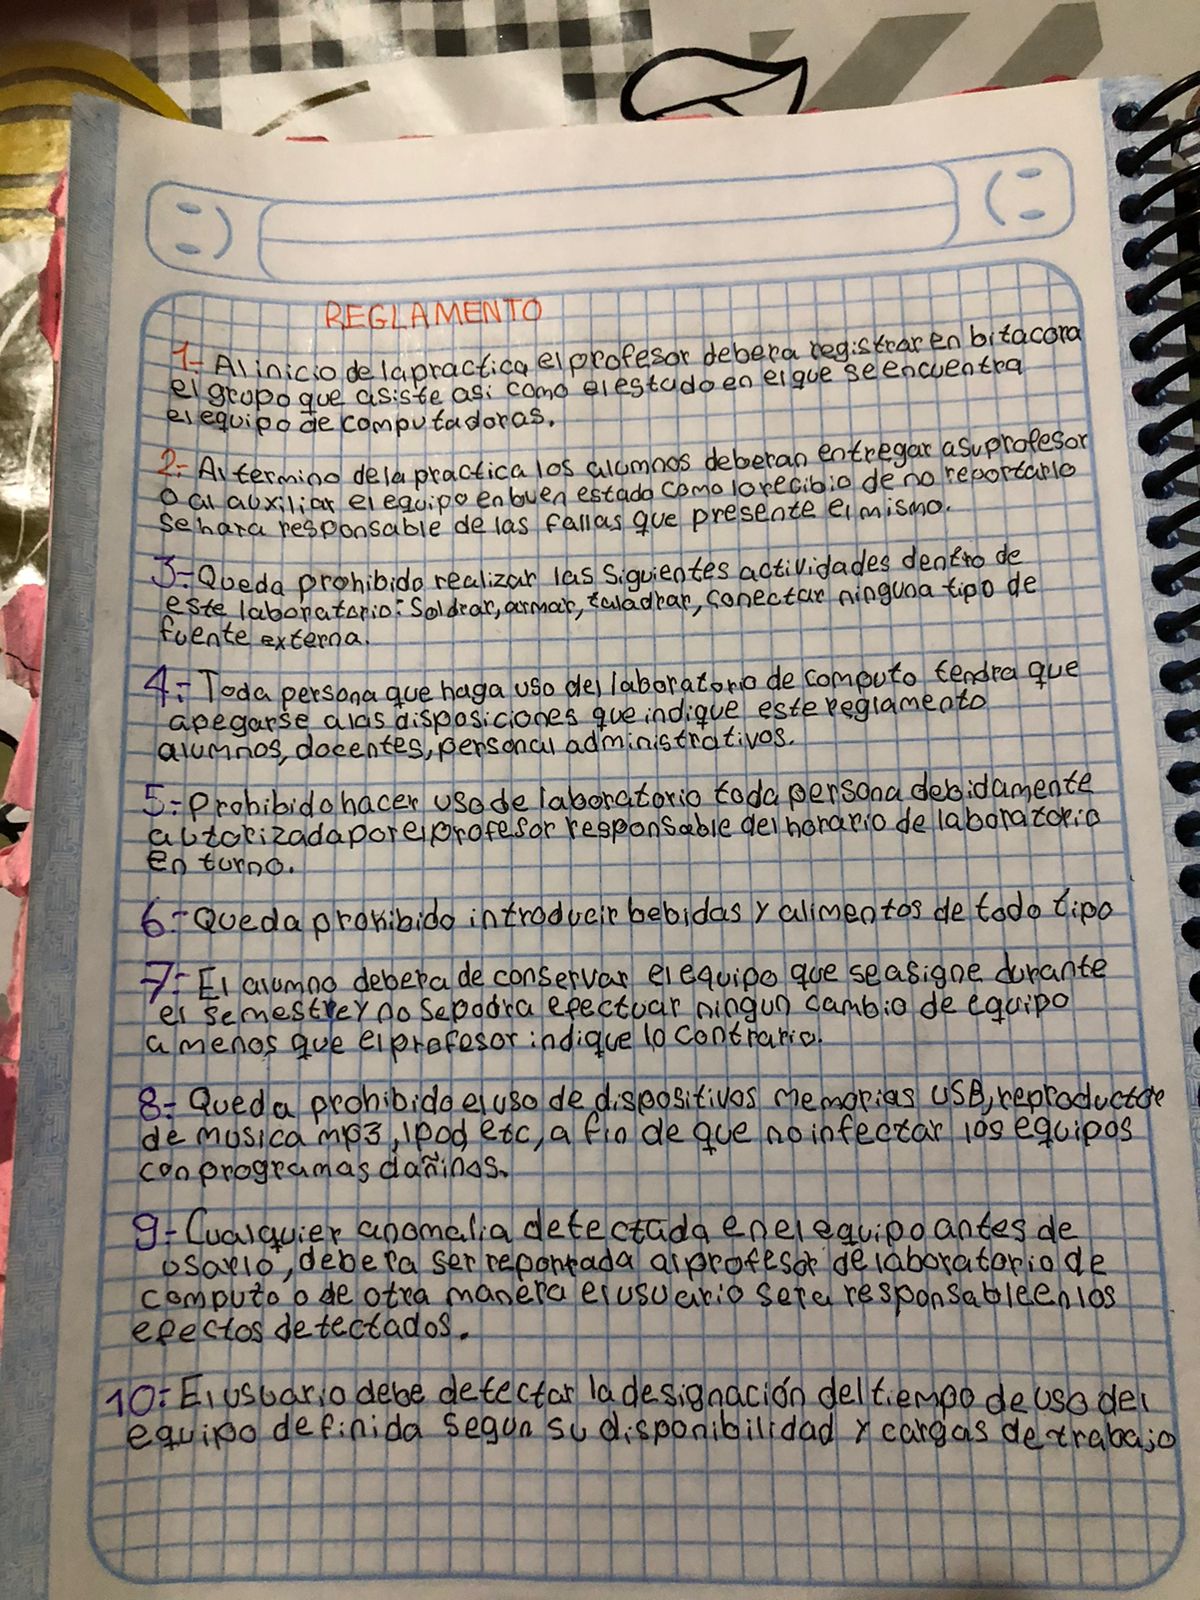 REGLAMENTO
1.- Al inicio de la practica el profesor debera registrar en bitacora
el grupo que asiste asi como el estado en el que se encuentra
el equipo de computadoras.
2.- Al termino de la practica los alumnos deberan entregar a su profesor
o al auxiliar el equipo en buen estado como lo recibio de no reportarlo
se hara responsable de las fallas que presente el mismo.
3.- Queda prohibido realizar las siguientes actividades dentro de
este laboratorio: Soldrar, armar, taladrar, conectar ninguna tipo de
fuente externa.
4.- Toda persona que haga uso del laboratorio de computo tendra que
apegarse a las disposiciones que indique este reglamento
alumnos, docentes, personal administrativos.
5.- Prohibido hacer uso de laboratorio toda persona debidamente
autorizada por el profesor responsable del horario de laboratorio
en turno.
6.- Queda prohibido introducir bebidas y alimentos de todo tipo
7.- El alumno debera de conservar el equipo que se asigne durante
el semestre y no se podra efectuar ningun cambio de equipo
a menos que el profesor indique lo contrario.
8.- Queda prohibido el uso de dispositivos memorias USB, reproductor
de musica mp3, ipod etc, a fin de que no infectar los equipos
con programas dañinos.
9.- Cualquier anomalia detectada en el equipo antes de
usarlo, debera ser reportada al profesor de laboratorio de
computo o de otra manera el usuario sera responsable en los
efectos detectados.
10.- El usuario debe detectar la designación del tiempo de uso del
equipo definida segun su disponibilidad y cargas de trabajo